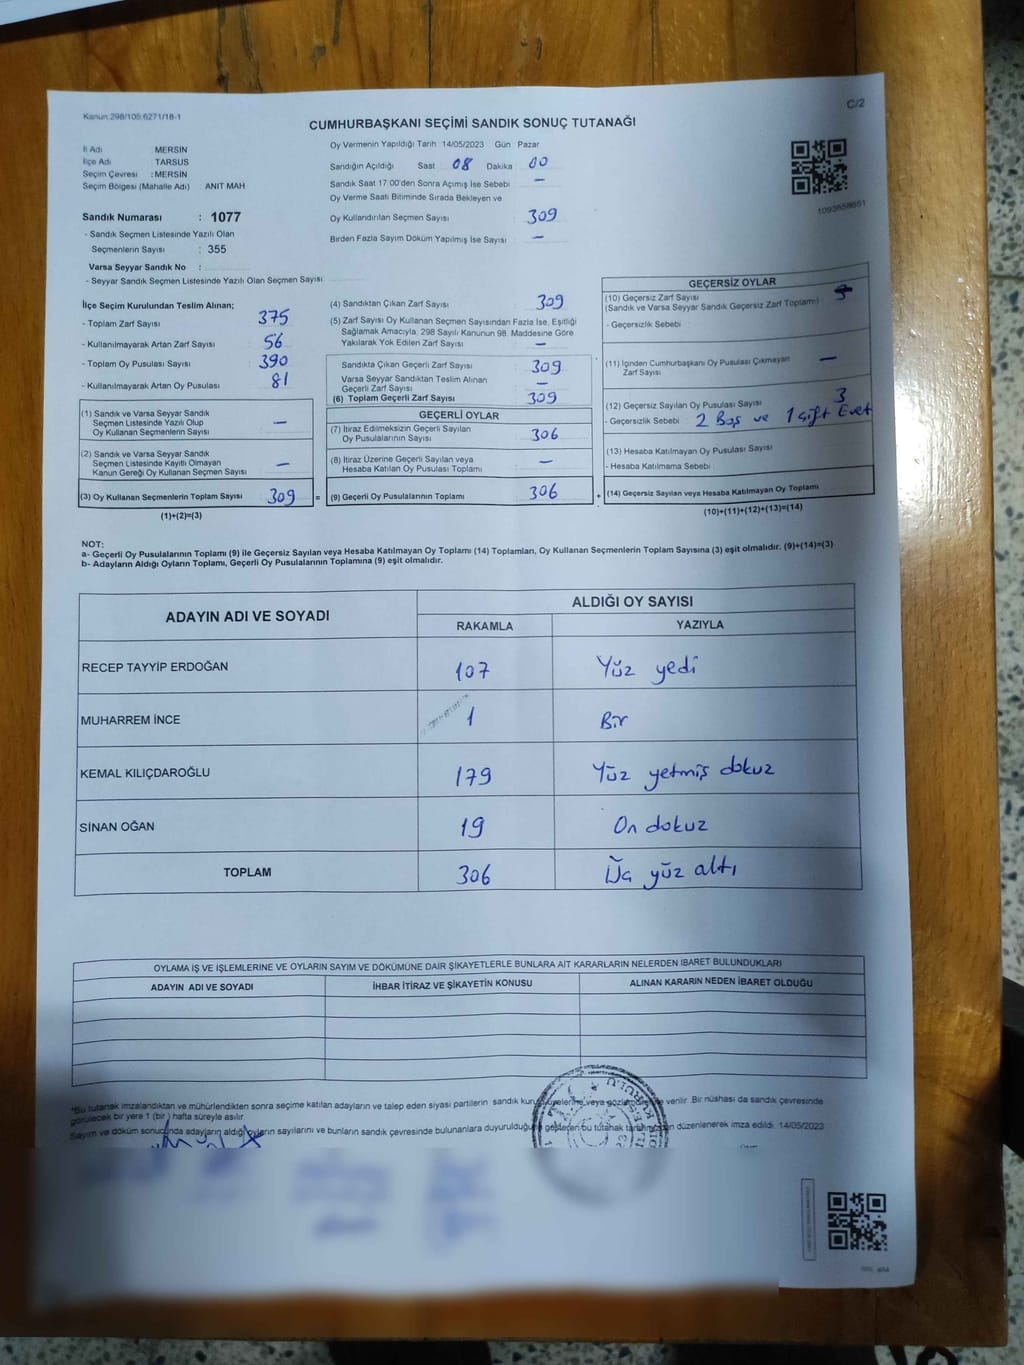 Kanun:298/105;6271/18-1
C/2
CUMHURBAŞKANI SEÇİMİ SANDIK SONUÇ TUTANAĞI
İl Adı MERSİN
İlçe Adı TARSUS
Seçim Çevresi : MERSİN
Seçim Bölgesi (Mahalle Adı) ANIT MAH
Sandık Numarası : 1077
- Sandık Seçmen Listesinde Yazılı Olan
Seçmenlerin Sayısı : 355
Varsa Seyyar Sandık No :
- Seyyar Sandık Seçmen Listesinde Yazılı Olan Seçmen Sayısı
Oy Vermenin Yapıldığı Tarih 14/05/2023 Gün Pazar
Sandığın Açıldığı Saat 08 Dakika 00
Sandık Saat 17:00'den Sonra Açımış İse Sebebi : —
Oy Verme Saati Bitiminde Sırada Bekleyen ve
Oy Kullandırılan Seçmen Sayısı : 309
Birden Fazla Sayım Döküm Yapılmış İse Sayısı : —
1093658651
İlçe Seçim Kurulundan Teslim Alınan;
- Toplam Zarf Sayısı : 375
- Kullanılmayarak Artan Zarf Sayısı : 56
- Toplam Oy Pusulası Sayısı : 390
- Kullanılmayarak Artan Oy Pusulası : 81
(1) Sandık ve Varsa Seyyar Sandık
Seçmen Listesinde Yazılı Olup
Oy Kullanan Seçmenlerin Sayısı : —
(2) Sandık ve Varsa Seyyar Sandık
Seçmen Listesinde Kayıtlı Olmayan
Kanun Gereği Oy Kullanan Seçmen Sayısı : —
(3) Oy Kullanan Seçmenlerin Toplam Sayısı : 309 =
(1)+(2)=(3)
(4) Sandıktan Çıkan Zarf Sayısı : 309
(5) Zarf Sayısı Oy Kullanan Seçmen Sayısından Fazla İse, Eşitliği
Sağlamak Amacıyla, 298 Sayılı Kanunun 98. Maddesine Göre
Yakılarak Yok Edilen Zarf Sayısı : —
Sandıkta Çıkan Geçerli Zarf Sayısı : 309
Varsa Seyyar Sandıktan Teslim Alınan
Geçerli Zarf Sayısı : —
(6) Toplam Geçerli Zarf Sayısı : 309
GEÇERLİ OYLAR
(7) İtiraz Edilmeksizin Geçerli Sayılan
Oy Pusulalarının Sayısı : 306
(8) İtiraz Üzerine Geçerli Sayılan veya
Hesaba Katılan Oy Pusulası Toplamı : —
(9) Geçerli Oy Pusulalarının Toplamı : 306 +
GEÇERSİZ OYLAR
(10) Geçersiz Zarf Sayısı
(Sandık ve Varsa Seyyar Sandık Geçersiz Zarf Toplamı)
- Geçersizlik Sebebi :
(11) İçinden Cumhurbaşkanı Oy Pusulası Çıkmayan
Zarf Sayısı : —
(12) Geçersiz Sayılan Oy Pusulası Sayısı : 3
- Geçersizlik Sebebi : 2 Boş ve 1 Çift Evet
(13) Hesaba Katılmayan Oy Pusulası Sayısı :
- Hesaba Katılmama Sebebi :
(14) Geçersiz Sayılan veya Hesaba Katılmayan Oy Toplamı
(10)+(11)+(12)+(13)=(14)
NOT:
a- Geçerli Oy Pusulalarının Toplamı (9) ile Geçersiz Sayılan veya Hesaba Katılmayan Oy Toplamı (14) Toplamları, Oy Kullanan Seçmenlerin Toplam Sayısına (3) eşit olmalıdır. (9)+(14)=(3)
b- Adayların Aldığı Oyların Toplamı, Geçerli Oy Pusulalarının Toplamına (9) eşit olmalıdır.
ADAYIN ADI VE SOYADI ALDIĞI OY SAYISI
RAKAMLA YAZIYLA
RECEP TAYYİP ERDOĞAN 107 Yüz yedi
MUHARREM İNCE 1 Bir
KEMAL KILIÇDAROĞLU 179 Yüz yetmiş dokuz
SİNAN OĞAN 19 On dokuz
TOPLAM 306 yüz altı
OYLAMA İŞ VE İŞLEMLERİNE VE OYLARIN SAYIM VE DÖKÜMÜNE DAİR ŞİKAYETLERLE BUNLARA AİT KARARLARIN NELERDEN İBARET BULUNDUKLARI
ADAYIN ADI VE SOYADI İHBAR İTİRAZ VE ŞİKAYETİN KONUSU ALINAN KARARIN NEDEN İBARET OLDUĞU
*Bu tutanak imzalandıktan ve mühürlendikten sonra seçime katılan adayların ve talep eden siyasi partilerin sandık kurulu üyelerine veya gözlemcilerine verilir. Bir nüshası da sandık çevresinde
görülecek bir yere 1 (bir) hafta süreyle asılır.
Sayım ve döküm sonucunda adayların aldığı oyların sayılarını ve bunların sandık çevresinde bulunanlara duyurulduğunu gösteren bu tutanak tarafımızdan düzenlenerek imza edildi. 14/05/2023